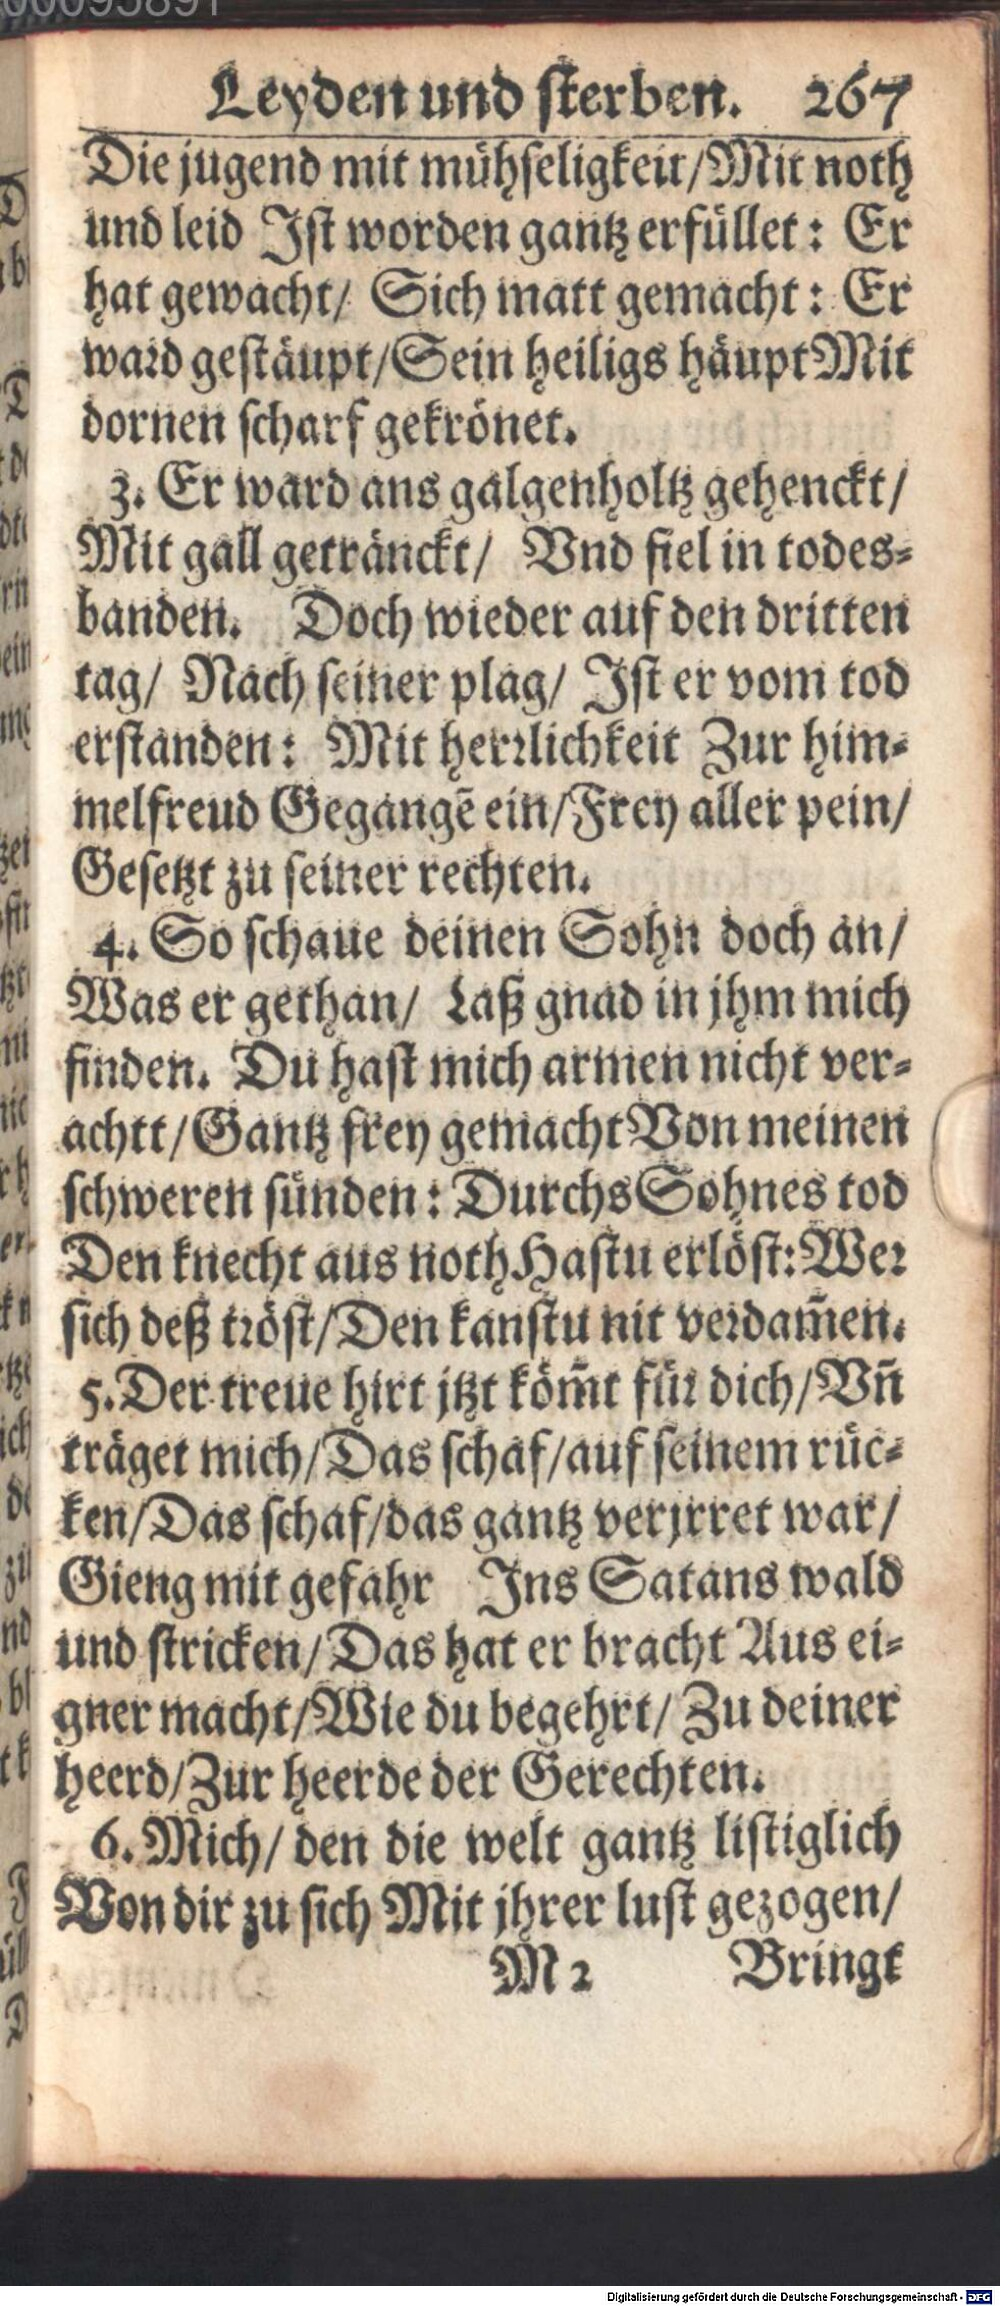 00095891
Leyden und sterben. 267
Die jugend mit mühseligkeit/Mit noth
und leid Ist worden gantz erfüllet: Er
hat gewacht/ Sich matt gemacht: Er
ward gestäupt/Sein heiligs häupt Mit
dornen scharf gekrönet.
3. Er ward ans galgenholtz gehenckt/
Mit gall getränckt/ Vnd fiel in todes-
banden. Doch wieder auf den dritten
tag/ Nach seiner plag/ Ist er vom tod
erstanden: Mit herrlichkeit Zur him-
melfreud Gegangē ein/Frey aller pein/
Gesetzt zu seiner rechten.
4. So schaue deinen Sohn doch an/
Was er gethan/ Laß gnad in jhm mich
finden. Du hast mich armen nicht ver-
achtt/Gantz frey gemacht Von meinen
schweren sünden: Durchs Sohnes tod
Den knecht aus noth Hastu erlöst: Wer
sich deß tröst/Den kanstu nit verdam̃en.
5. Der treue hirt jtzt köm̃t für dich/Vñ
träget mich/Das schaf/auf seinem rüc-
ken/Das schaf/das gantz verjrret war/
Gieng mit gefahr Ins Satans wald
und stricken/Das hat er bracht Aus ei-
gner macht/Wie du begehrt/ Zu deiner
heerd/Zur heerde der Gerechten.
6. Mich/ den die welt gantz listiglich
Von dir zu sich Mit jhrer lust gezogen/
M 2 Bringt
Digitalisierung gefördert durch die Deutsche Forschungsgemeinschaft - DFG